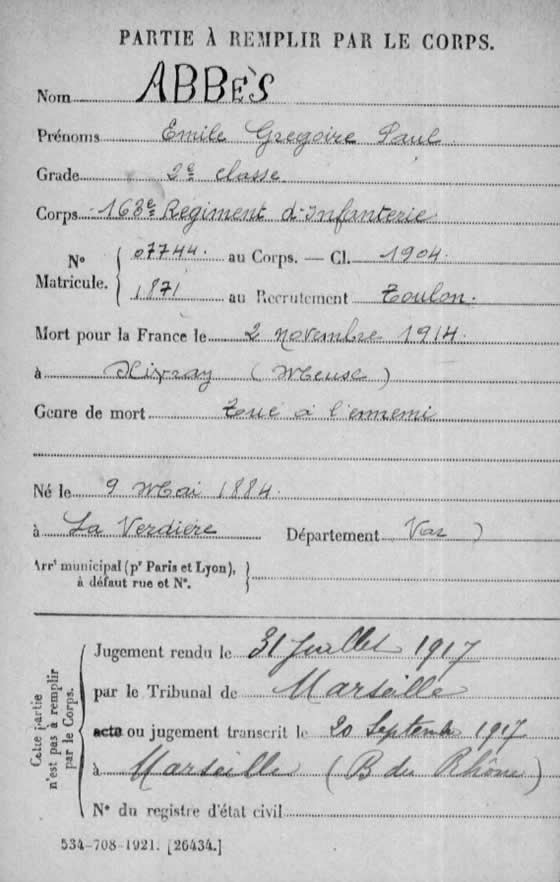 PARTIE À REMPLIR PAR LE CORPS.
Nom ABBÈS
Prénoms Emile Gregoire Paul
Grade 2e classe
Corps 163e Regiment d'Infanterie
No Matricule. { 07744. au Corps. — Cl. 1904.
1871 au Recrutement Toulon.
Mort pour la France le 2 novembre 1914.
à Xivray (Meuse)
Genre de mort Tué à l'ennemi
Né le 9 Mai 1884.
à La Verdière Département Var )
Arrt municipal (pr Paris et Lyon), }
à défaut rue et No.
Cette partie
n'est pas à remplir
par le Corps.
Jugement rendu le 31 Juillet 1917
par le Tribunal de Marseille
acte ou jugement transcrit le 20 Septembre 1917
à Marseille (B du Rhône)
No du registre d'état civil
534-708-1921. [26434.]